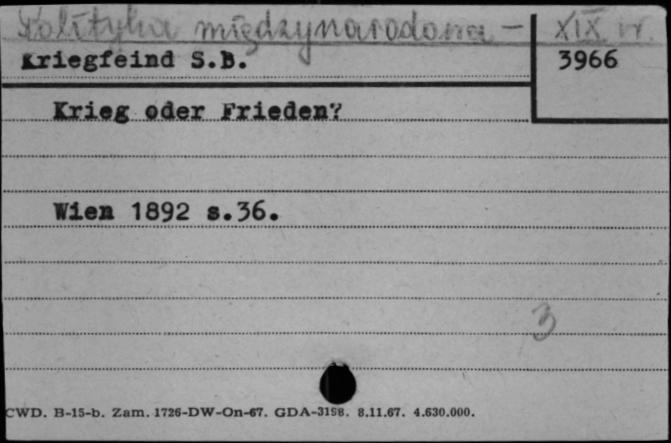 Polityka międzynarodowa - XIX w.
Kriegfeind S.B.
3966
Krieg oder Frieden?
Wien 1892 s.36.
3
CWD. B-15-b. Zam. 1726-DW-On-67. GDA-3198. 8.11.67. 4.630.000.